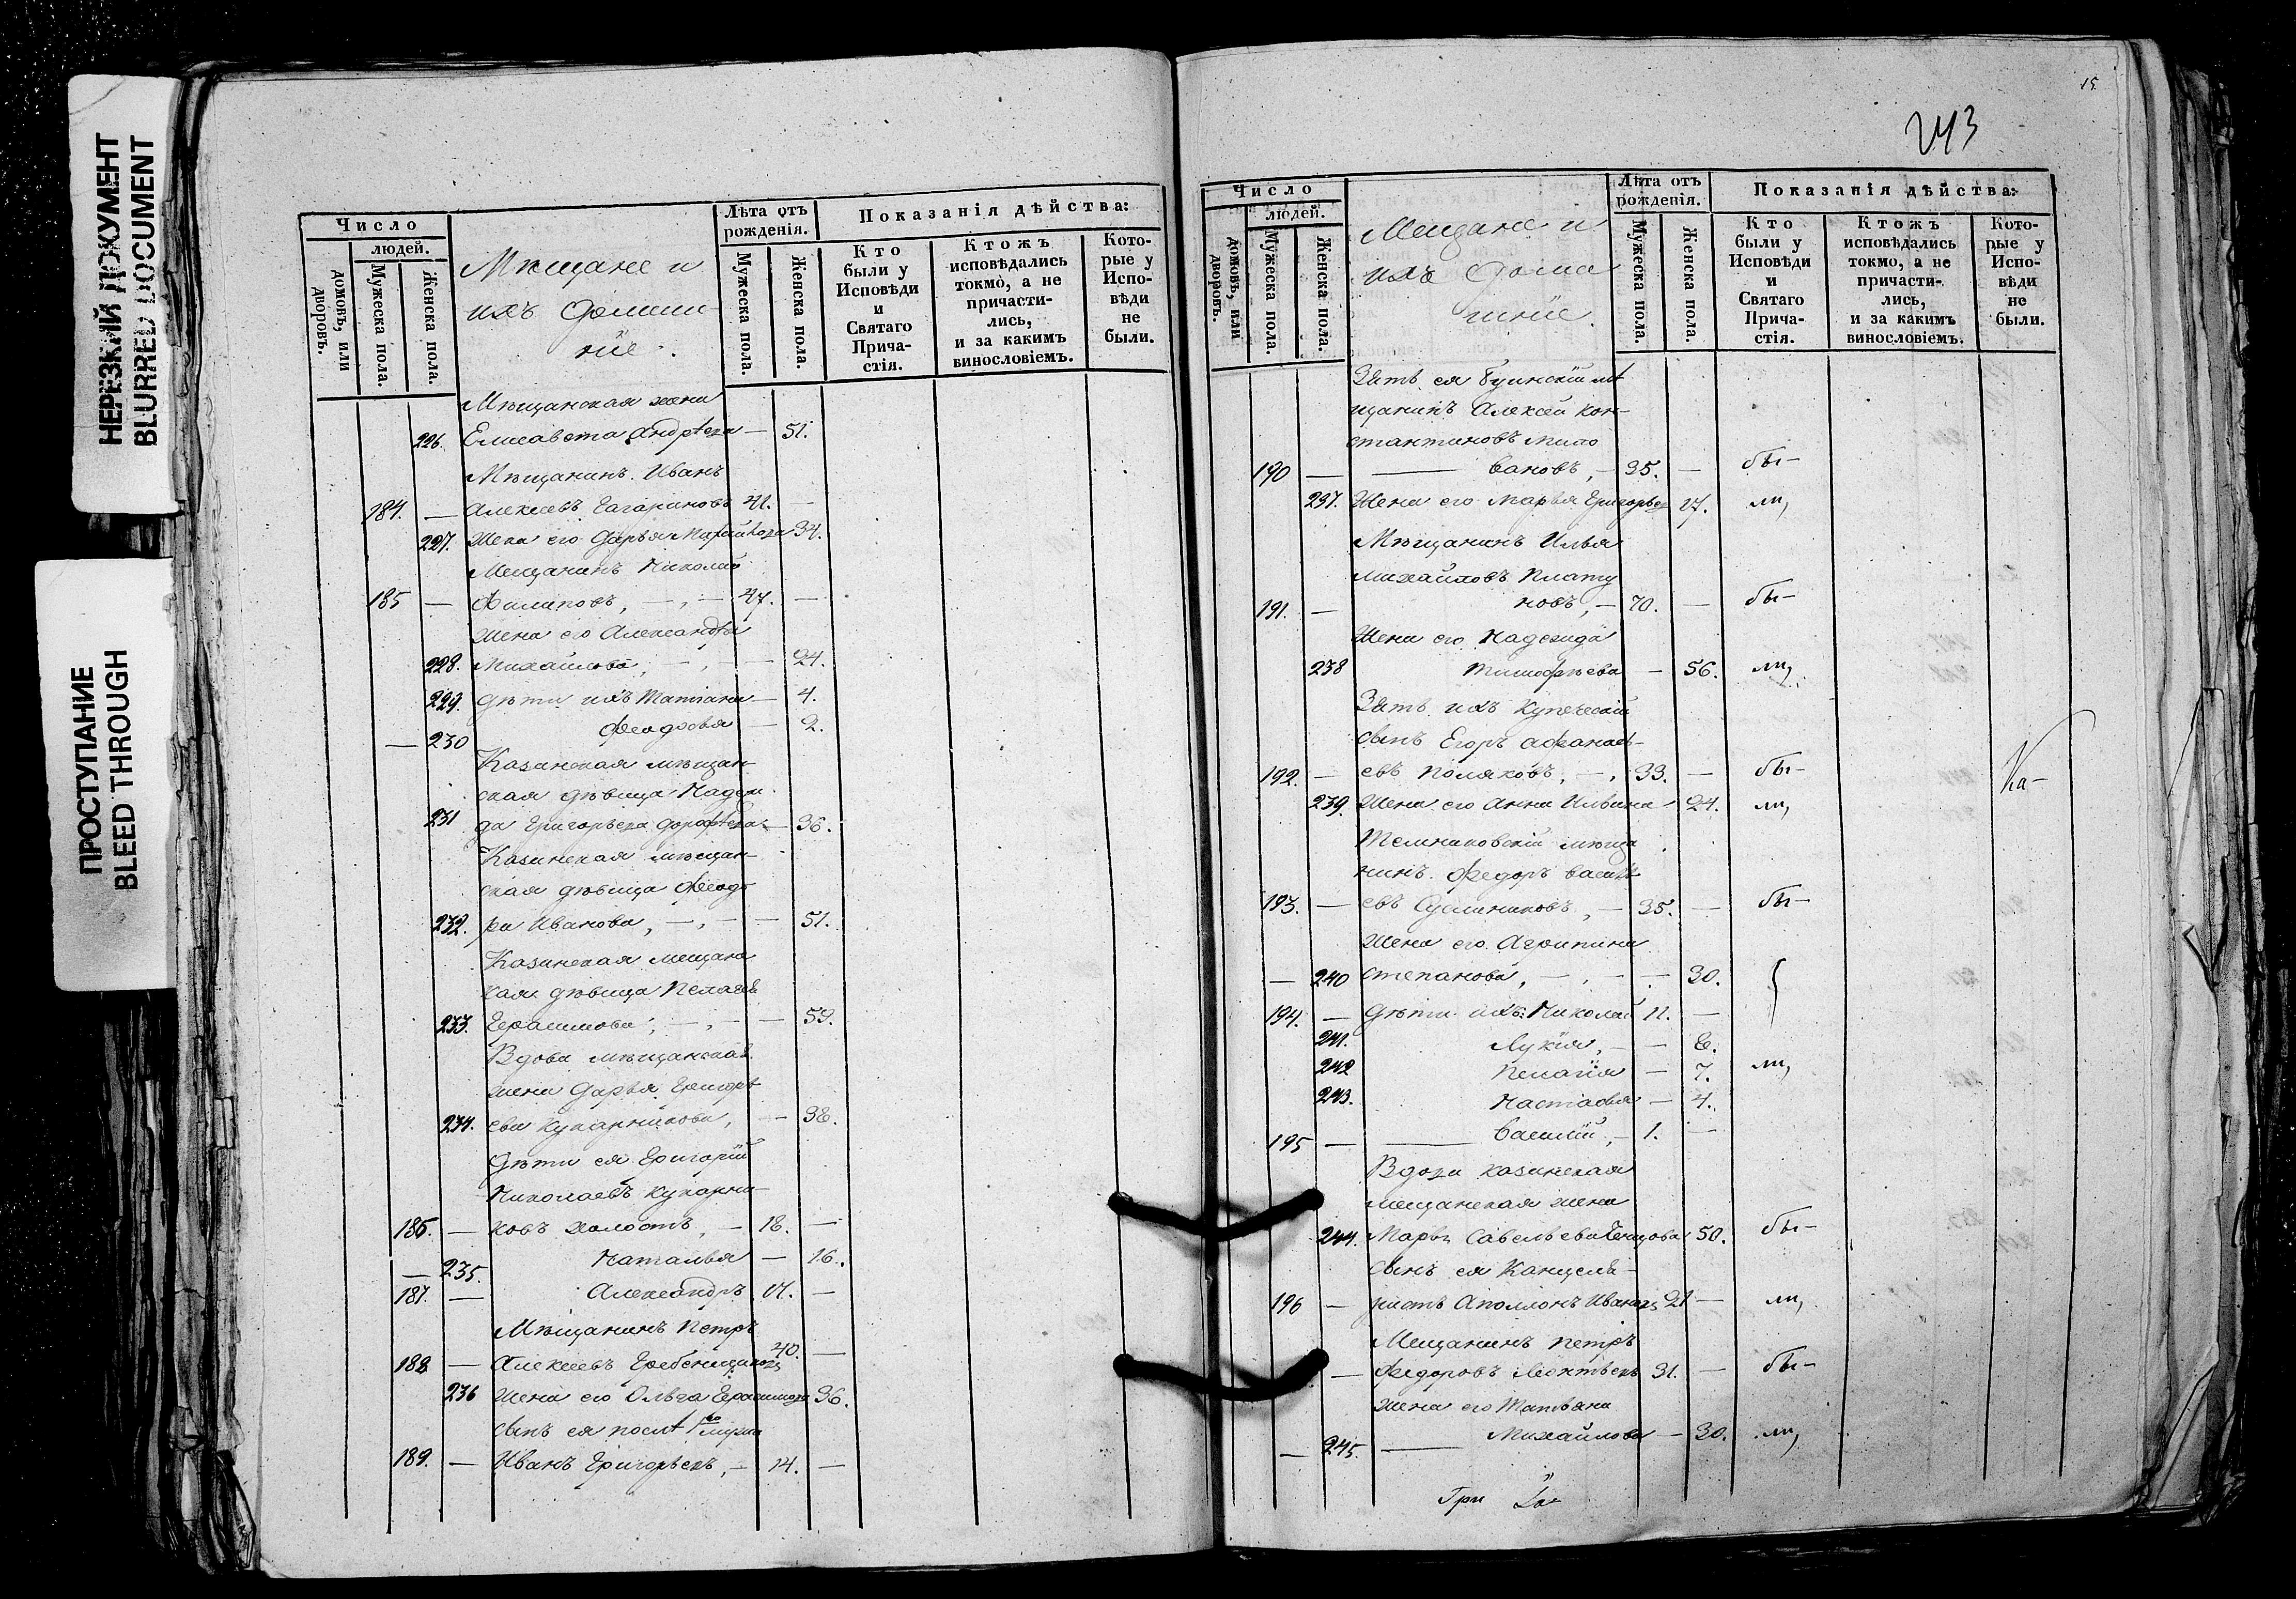 НЕРЕЗКИЙ ДОКУМЕНТ
BLURRED DOCUMENT
ПРОСТУПАНИЕ
BLEED THROUGH
Число
людей.
домовъ, или дворовъ.
Мужеска пола.
Женска пола.
Мѣщане и
ихъ домаш
ніе.
Лѣта отъ рожденія.
Мужеска пола.
Женска пола.
Показанія дѣйства:
Кто были у Исповѣди и Святаго Прича- стія.
Ктожъ исповѣдались токмо, а не причасти- лись, и за какимъ винословіемъ.
Кото- рые у Испо- вѣди не были.
Мѣщанская жена
226. Елисавета Андрѣева — 51.
Мѣщанинъ Иванъ
184. — Алексѣевъ Гагариновъ 41. —
227. Жена его Дарья Михайлова 34.
Мещанинъ Николай
185 — Филиповъ, — , — 47. —
Жена его Александра
228. Михайлова, — , — — 24.
229. Дѣти ихъ Татіана — 4.
— 230 Феодосья — 2.
Казанская мѣщан-
ская дѣвица Надеж
231 да Григорьева Дорофѣева — 36.
Казанская мѣщан-
ская дѣвица Феодо
232. ра Иванова, — , — — 51.
Казанская мещанс
кая дѣвица Пелагея
233. Герасимова, — , — — 59.
Вдова мѣщанская
жена Дарья Григорь
234. ева Кукарникова, — — 38.
Дѣти ея Григорій
Николаевъ Кукарни-
186. — ковъ холостъ, — 18. —
— 235. Наталья — 16.
187. — Александръ 14. —
Мѣщанинъ Петръ
188 — Алексѣевъ Гребенщиковъ 40. —
236 Жена его Ольга Герасимова 36.
Сынъ ея послѣ 1го мужа
189. — Иванъ Григорьевъ, — 14. —
15
243
Число
людей.
домовъ, или дворовъ.
Мужеска пола.
Женска пола.
Мещане и
ихъ дома
шніе.
Лѣта отъ рожденія.
Мужеска пола.
Женска пола.
Показанія дѣйства:
Кто были у Исповѣди и Святаго Прича- стія.
Ктожъ исповѣдались токмо, а не причасти- лись, и за какимъ винословіемъ.
Кото- рые у Испо- вѣди не были.
Зять ея Буинскій мѣ
щанинъ Алексѣй Кон-
стантиновъ Мило
190 — вановъ, — 35. — бы-
237. Жена его Марья Григорьева 27. ли,
Мѣщанинъ Илья
Михайловъ Плату
191. — новъ, — 70. — бы-
Жена его Надежда
238 Тимофѣева — 56. ли,
Зять ихъ Купеческій
сынъ Егоръ Афанась-
192. — евъ Поляковъ, — , 33. — бы- Ка-
239. Жена его Анна Ильина 24. ли,
Темниковскій мѣща
нинъ Федоръ Василь
193. — евъ Судариковъ, — 35. — бы-
Жена его Агрипина
— 240 Степанова, — , — — 30.
194. — Дѣти ихъ: Николай 11. —
241. Лукія, — — 8.
242 Пелагія — 7. ли,
243. Настасья — 4.
195 — Василій, — 1. —
Вдова Казанская
мещанская жена
244. Марья Савельева 50. бы-
сынъ ея Канцеля-
196 — ристъ Аполлонъ Ивановъ 21 — ли,
Мещанинъ Петръ
— Федоровъ Леонтьевъ 31. — бы-
Жена его Татьяна
— 245. Михайлова — 30. ли,